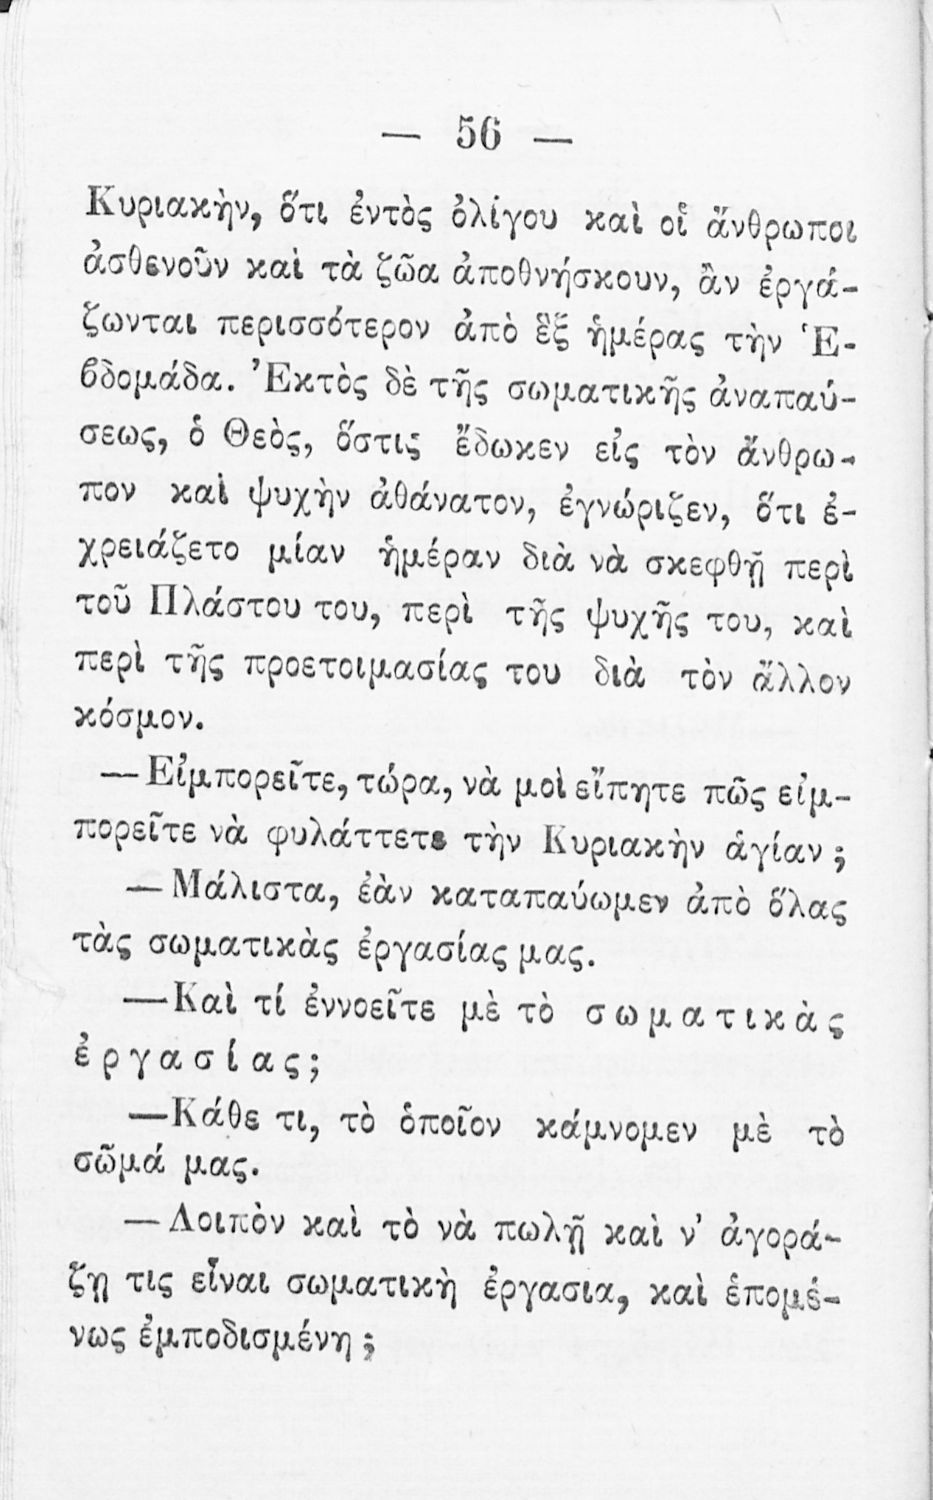 — 56 —
Κυριακὴν, ὅτι ἐντὸς ὀλίγου καὶ οἱ ἄνθρωποι
ἀσθενοῦν καὶ τὰ ζῶα ἀποθνήσκουν, ἂν ἐργά-
ζωνται περισσότερον ἀπὸ ἓξ ἡμέρας τὴν Ἑ-
βδομάδα. Ἐκτὸς δὲ τῆς σωματικῆς ἀναπαύ-
σεως, ὁ Θεὸς, ὅστις ἔδωκεν εἰς τὸν ἄνθρω-
πον καὶ ψυχὴν ἀθάνατον, ἐγνώριζεν, ὅτι ἐ-
χρειάζετο μίαν ἡμέραν διὰ νὰ σκεφθῇ περὶ
τοῦ Πλάστου του, περὶ τῆς ψυχῆς του, καὶ
περὶ τῆς προετοιμασίας του διὰ τὸν ἄλλον
κόσμον.
— Εἰμπορεῖτε, τώρα, νὰ μοὶ εἴπητε πῶς εἰμ-
πορεῖτε νὰ φυλάττετε τὴν Κυριακὴν ἁγίαν ;
— Μάλιστα, ἐὰν καταπαύωμεν ἀπὸ ὅλας
τὰς σωματικὰς ἐργασίας μας.
— Καὶ τί ἐννοεῖτε μὲ τὸ σωματικὰς
ἐργασίας;
— Κάθε τι, τὸ ὁποῖον κάμνομεν μὲ τὸ
σῶμά μας.
— Λοιπὸν καὶ τὸ νὰ πωλῇ καὶ ν' ἀγορά-
ζῃ τις εἶναι σωματικὴ ἐργασια, καὶ ἑπομέ-
νως ἐμποδισμένη ;